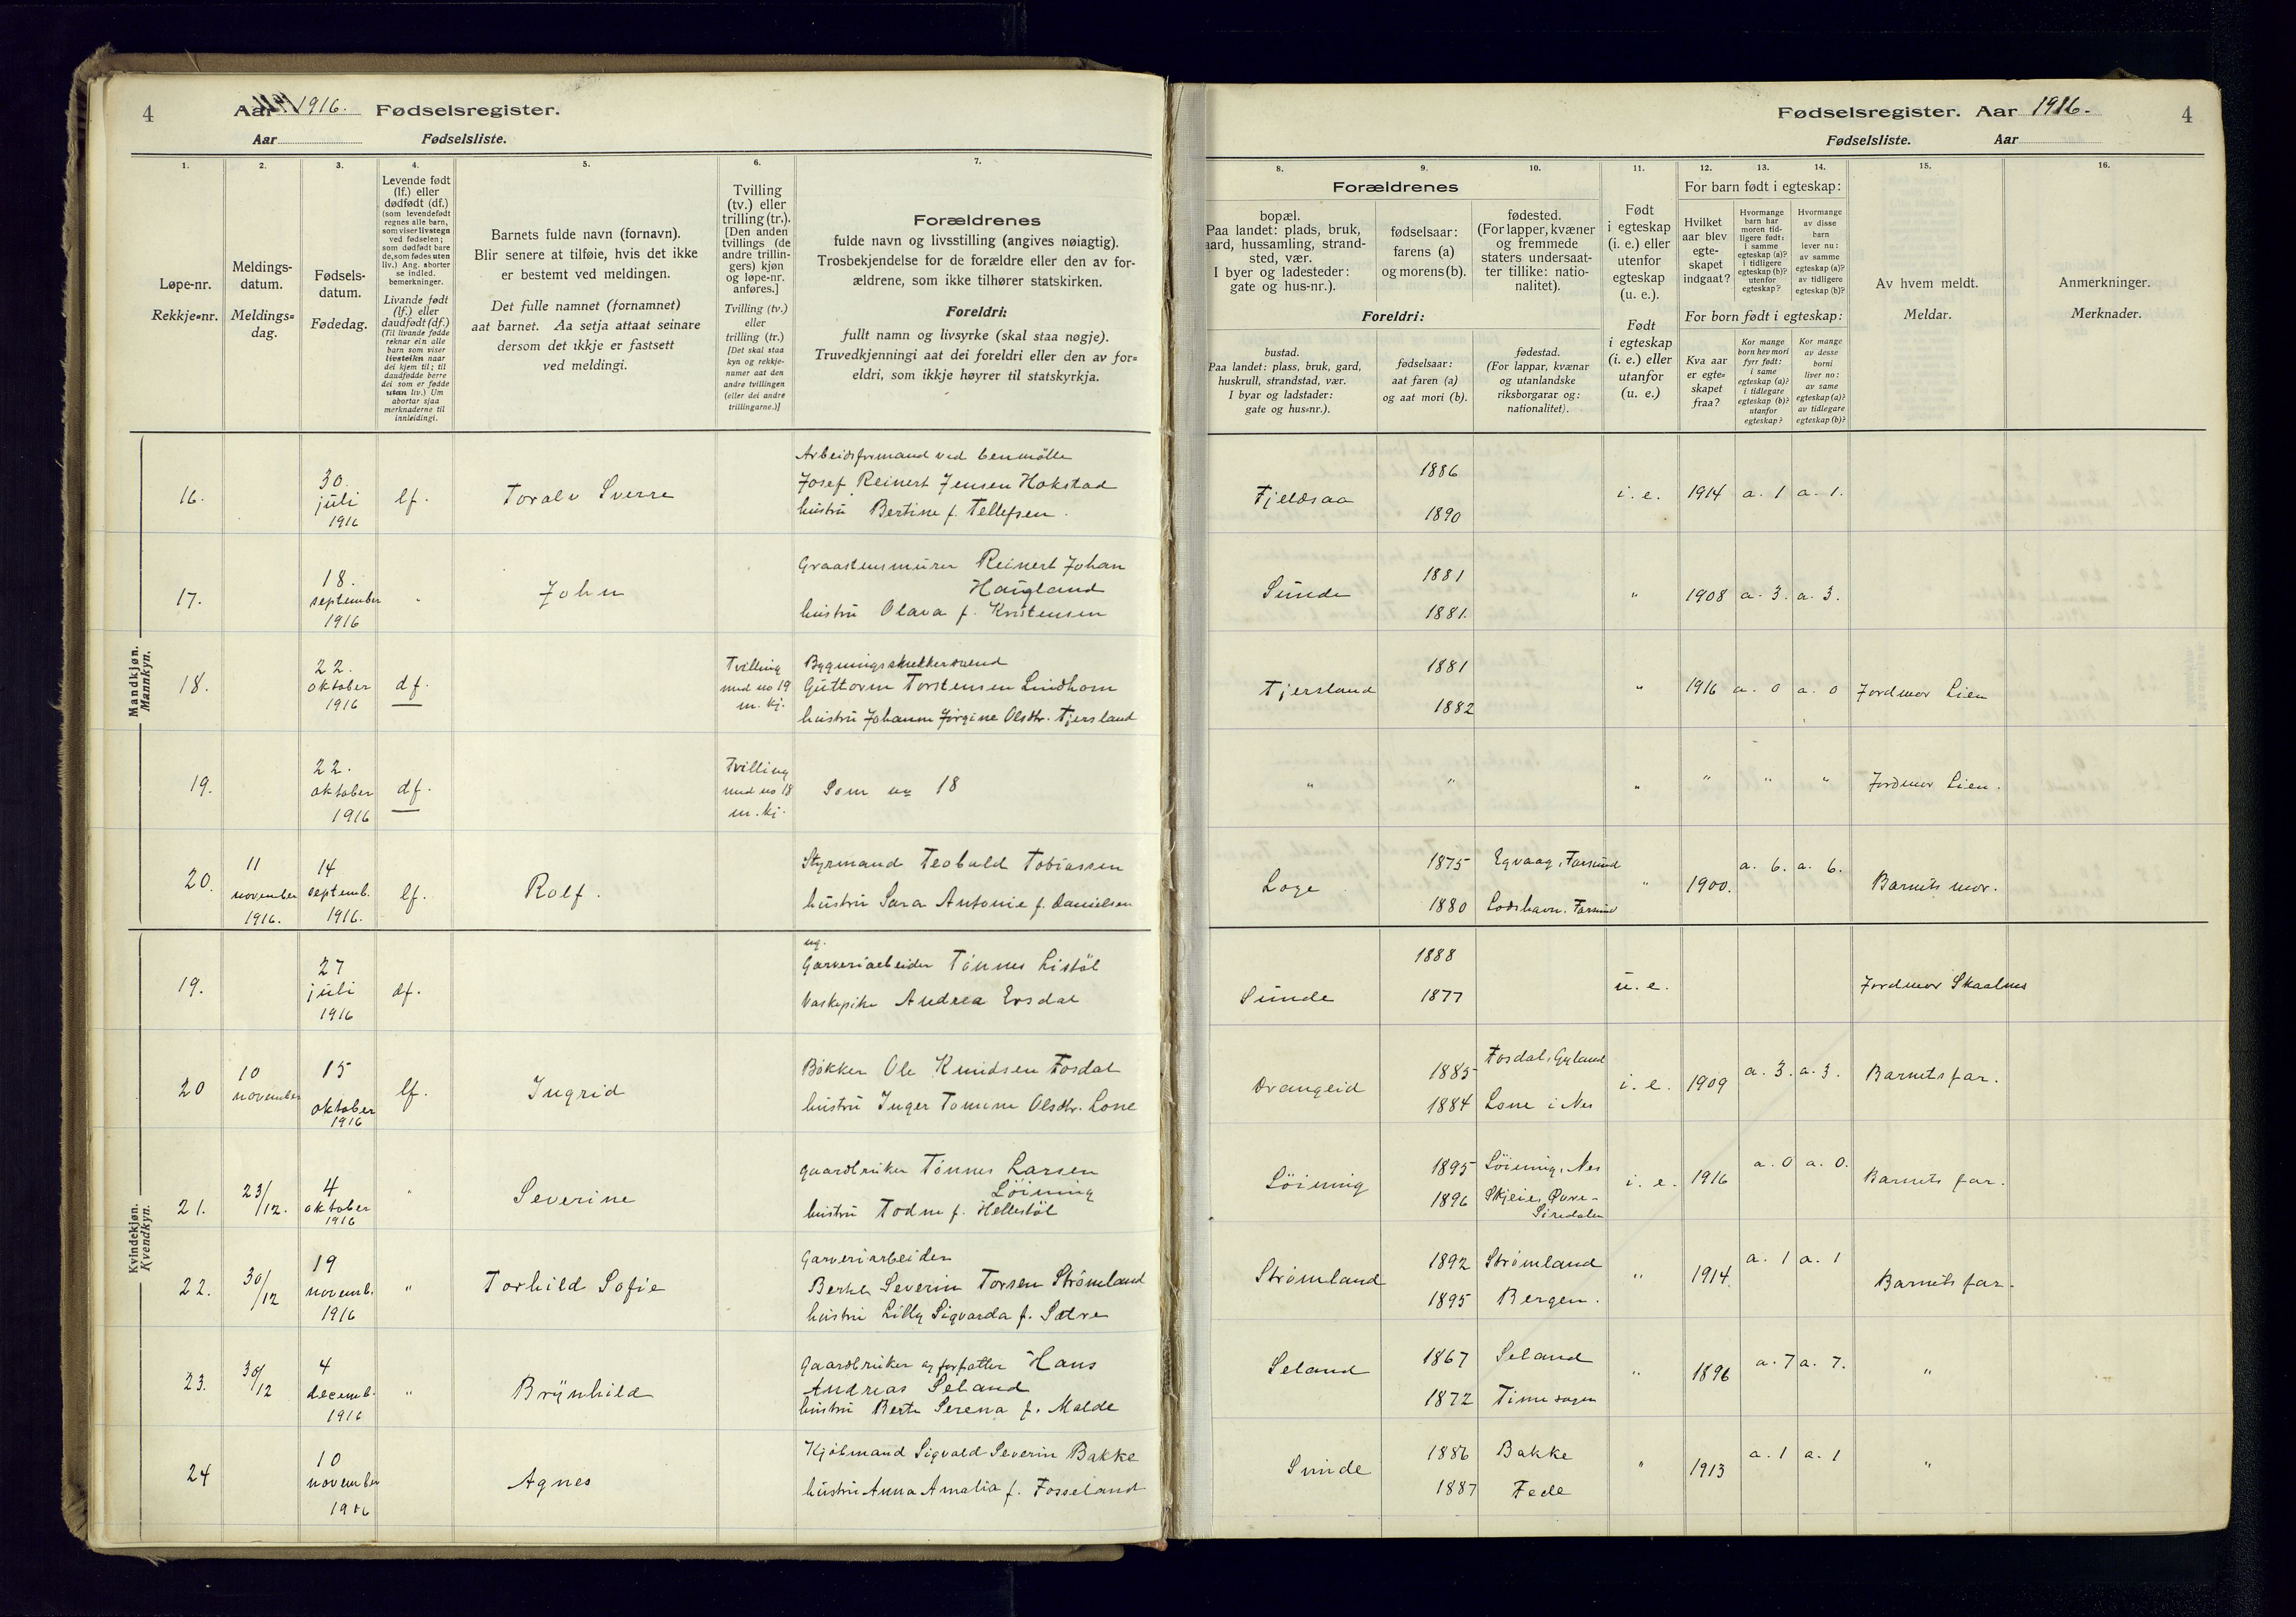 4 Aar 1916. Fødselsregister.
Aar Fødselsliste.
Fødselsregister. Aar 1916. 4
Fødselsliste. Aar
1. 2. 3. 4. 5. 6. 7.
Løpe-nr.
Rekkje=nr.
Meldings-
datum.
Meldings=
dag.
Fødsels-
datum.
Fødedag.
Levende født
(lf.) eller
dødfødt (df.)
(som levendefødt
regnes alle barn,
som viser livstegn
ved fødselen;
som dødfødt bare
de, som fødes uten
liv.) Ang. aborter
se indled.
bemerkninger.
Livande født
(lf.) eller
daudfødt (df.)
(Til livande fødde
reknar ein alle
barn som viser
livsteikn naar
dei kjem til; til
daudfødde berre
dei som er fødde
utan liv.) Um
abortar sjaa
merknaderne til
innleidingi.
Barnets fulde navn (fornavn).
Blir senere at tilføie, hvis det ikke
er bestemt ved meldingen.
Det fulle namnet (fornamnet)
aat barnet. Aa setja attaat seinare
dersom det ikkje er fastsett
ved meldingi.
Tvilling
(tv.) eller
trilling (tr.).
[Den anden
tvillings (de
andre trillin-
gers) kjøn
og løpe-nr.
anføres.]
Tvilling (tv.)
eller
trilling (tr.)
[Det skal staa
kyn og rekkje-
numer aat den
andre tvillingen
(eller dei andre
trillingarne.)]
Forældrenes
fulde navn og livsstilling (angives nøiagtig).
Trosbekjendelse for de forældre eller den av for-
ældrene, som ikke tilhører statskirken.
Foreldri:
fullt namn og livsyrke (skal staa nøgje).
Truvedkjenningi aat dei foreldri eller den av for=
eldri, som ikkje høyrer til statskyrkja.
8. 9. 10. 11. 12. 13. 14. 15. 16.
Forældrenes
bopæl.
Paa landet: plads, bruk,
aard, hussamling, strand-
sted, vær.
I byer og ladesteder:
gate og hus-nr.).
fødselsaar:
farens (a)
og morens (b).
fødested.
(For lapper, kvæner
og fremmede
staters undersaat-
ter tillike: natio-
nalitet).
Foreldri:
bustad.
Paa landet: plass, bruk, gard,
huskrull, strandstad, vær.
I byar og ladstader:
gate og hus=nr.).
fødselsaar:
aat faren (a)
og aat mori (b).
fødestad.
(For lappar, kvænar
og utanlandske
riksborgarar og:
nationalitet).
Født
i egteskap
(i. e.) eller
utenfor
egteskap
(u. e.).
Født
i egteskap
(i. e.) eller
utanfor
(u. e.)
For barn født i egteskap:
Hvilket
aar blev
egte-
skapet
indgaat?
Hvormange
barn har
moren tid-
ligere født:
i samme
egteskap (a)?
i tidligere
egteskap (b)?
utenfor
egteskap?
Hvormange
av disse
barn
lever nu:
av samme
egteskap (a)?
av tidligere
egteskap (b)?
For born født i egteskap:
Kva aar
er egte=
skapet
fraa?
Kor mange
born hev mori
fyrr født:
i same
egteskap (a)?
i tidlegare
egteskap (b)?
utanfor
egteskap?
Kor mange
av desse
borni
liver no:
av same
egteskap (a)?
av tidlegare
egteskap (b)?
Av hvem meldt.
Meldar.
Anmerkninger.
Merknader.
Mandkjøn.
Mannkyn.
16. 30. juli 1916 lf. Toralv Sverre
Arbeidsformand ved benmølle
Josef Reinert Jensen Hokstad
hustru Bertine f. Tellefsen.
Fjeldsaa 1886 1890 i. e. 1914 a. 1 a. 1.
17. 18. september 1916 " John
Graastensmurer Reinert Johan
Haugland
hustru Olava f. Kristensen
Sunde 1881 1881. " 1908 a. 3. a. 3.
18. 22. oktober 1916 df. Tvilling med no 19 m. kj.
Bygningssnekkersvend
Guttorm Torstensen Lindhom
hustru Johanne Jørgine Olsdtr. Tjersland
Tjersland 1881 1882 " 1916 a. 0 a. 0 Jordmor Lien
19. 22. oktober 1916 df. Tvilling med no 18 m. kj.
Som no 18
" " " " " " Jordmor Lien.
20. 11 november 1916. 14 septemb. 1916. lf. Rolf.
Styrmand Teobald Tobiassen
hustru Sara Antonie f. Danielsen
Loge 1875 Egvaag, Farsund
1880 Loshavn, Farsund
" 1900. a. 6. a. 6. Barnets mor.
Kvindekjøn.
Kvendkyn.
19. 27 juli 1916 df.
ug.
Garveriarbeider Tønnes Listøl
Vaskepike Andrea Ersdal
Sunde 1888 1877 u. e. Jordmor Skaalnes
20 10 november 15 oktober 1916 lf. Ingrid
Bøkker Ole Knudsen Fosdal
hustru Inger Tomine Olsdtr. Lone
Drangeid 1885 Fosdal, Gyland
1884 Lone i Nes
i. e. 1909 a. 3. a. 3. Barnets far.
21. 23/12. 4 oktober 1916 " Severine
gaardbruker Tønnes Larsen
Løining
hustru Todne f. Hellestøl
Løining 1895 Løining, Nes
1896 Skjeie, Øvre-
Siredalen
i. e. 1916 a. 0 a. 0. Barnets far.
22. 30/12 19 novemb. 1916 " Torhild Sofie
Garveriarbeider
Bertel Severin Torsen Strømland
hustru Lilly Sigvarda f. Sætre
Strømland 1892 Strømland
1895 Bergen.
" 1914. a. 1 a. 1 Barnets far.
23. 30/12 4 decemb. 1916 " Brynhild
Gaardbruker og forfatter Hans
Andreas Seland
hustru Berte Serena f. Malde
Seland 1867 Seland
1872 Time sogn
" 1896 a. 7 a. 7. "
24 10 november 1916 Agnes
Kjøbmand Sigvald Severin Bakke
hustru Anna Amalia f. Fosseland
Sunde 1886 Bakke
1887 Fede
" 1913 a. 1 a. 1 "